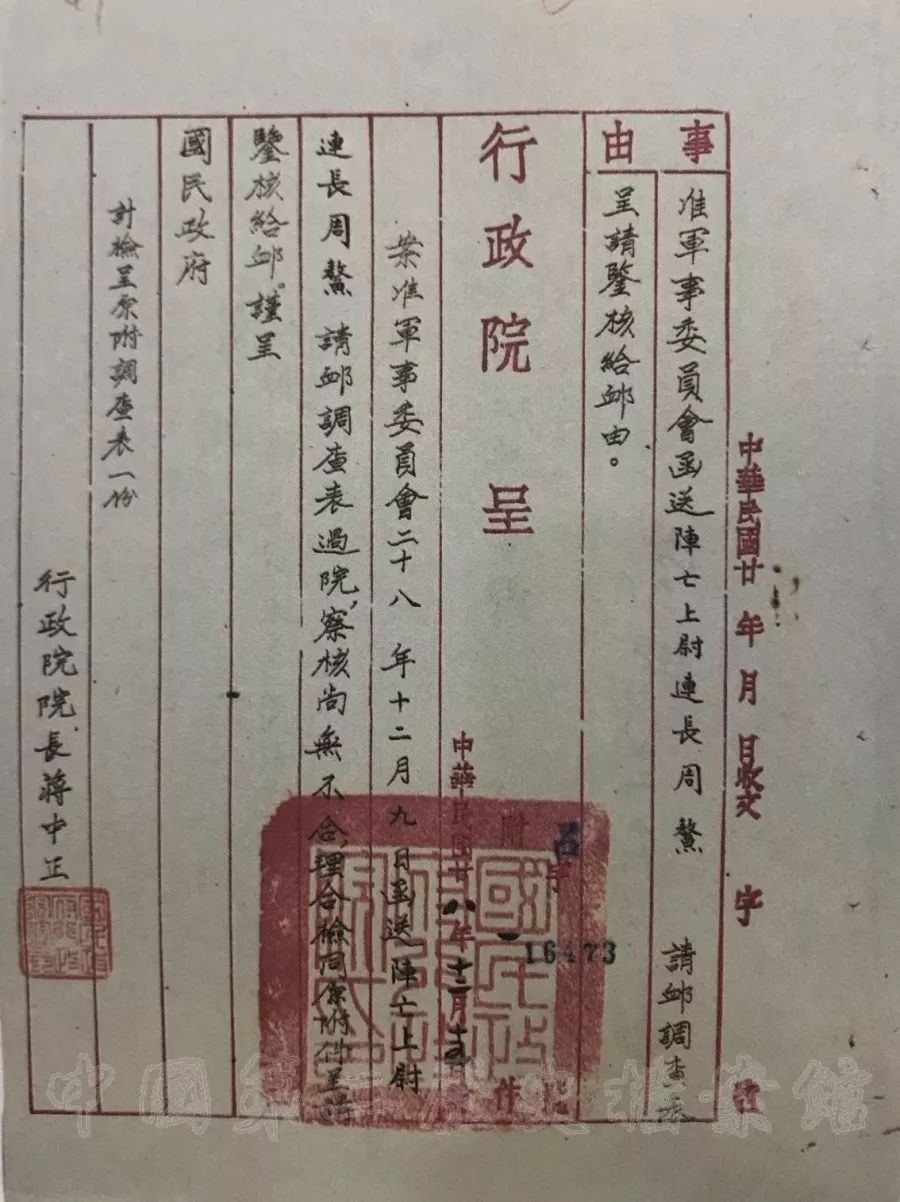 中華民國廿 年 月 日收文 字 號
事由
准軍事委員會函送陣亡上尉連長周鰲 請卹調查表
呈請鑒核給卹由。
行政院呈
中華民國廿八年十二月十五日
附 件
呂字
16473
號
案准軍事委員會二十八年十二月九日函送陣亡上尉
連長周鰲 請卹調查表過院，察核尚無不合，理合檢同原附件呈請
鑒核給卹。謹呈
國民政府
計檢呈原附調查表一份
行政院院長蔣中正
中國第二歷史檔案館